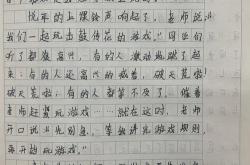 悦耳的上课铃声响起了，老师说：“我
们一起玩击鼓传花的游戏。”同学们
听了都很高兴，有的人激动地跳了起
来；有的人还高兴的喊着，破天荒啦！
破天荒啦；有的人都等不及了，催着
老师赶紧玩游戏……就在这时，老师
开口说：“先别急，等我讲完游戏规则，
再开始玩游戏。”